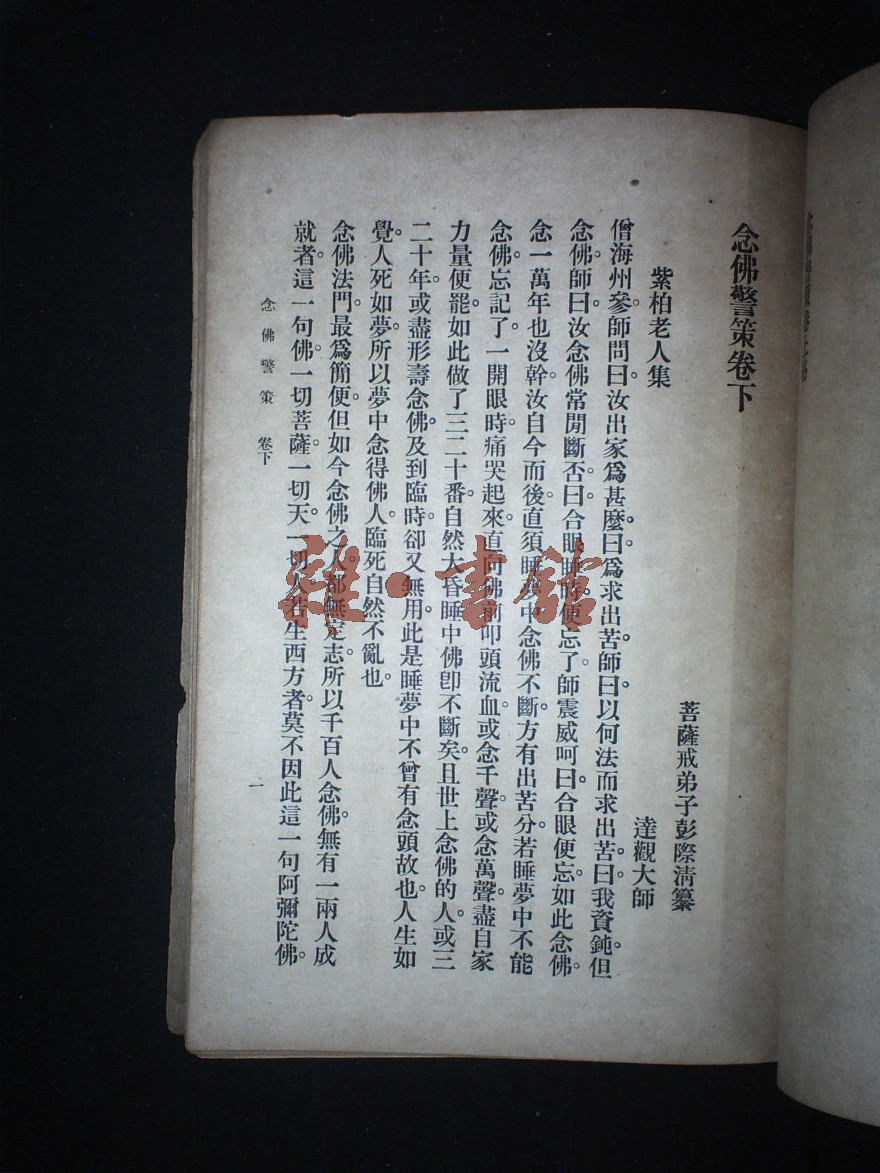 念佛警策卷下
菩薩戒弟子彭際清纂
紫柏老人集
達觀大師
僧海州參師問曰汝出家爲甚麼。曰爲求出苦。師曰以何法而求出苦。曰我資鈍。但
念佛。師曰汝念佛常閒斷否。曰合眼睡時。便忘了。師震威呵曰合眼便忘。如此念佛。
念一萬年也沒幹。汝自今而後。直須睡夢中念佛不斷。方有出苦分。若睡夢中不能
念佛。忘記了。一開眼時。痛哭起來。直向佛前叩頭流血。或念千聲。或念萬聲。盡自家
力量便罷。如此做了三二十番。自然大昏睡中佛卽不斷矣。且世上念佛的人。或三
二十年。或盡形壽念佛。及到臨時。卻又無用。此是睡夢中不曾有念頭故也。人生如
覺。人死如夢。所以夢中念得佛人。臨死自然不亂也。
念佛法門。最爲簡便。但如今念佛之人。都無定志。所以千百人念佛。無有一兩人成
就者。這一句佛。一切菩薩。一切天。一切人。若生西方者。莫不因此這一句阿彌陀佛。
念佛警策 卷下
一
雜·書館